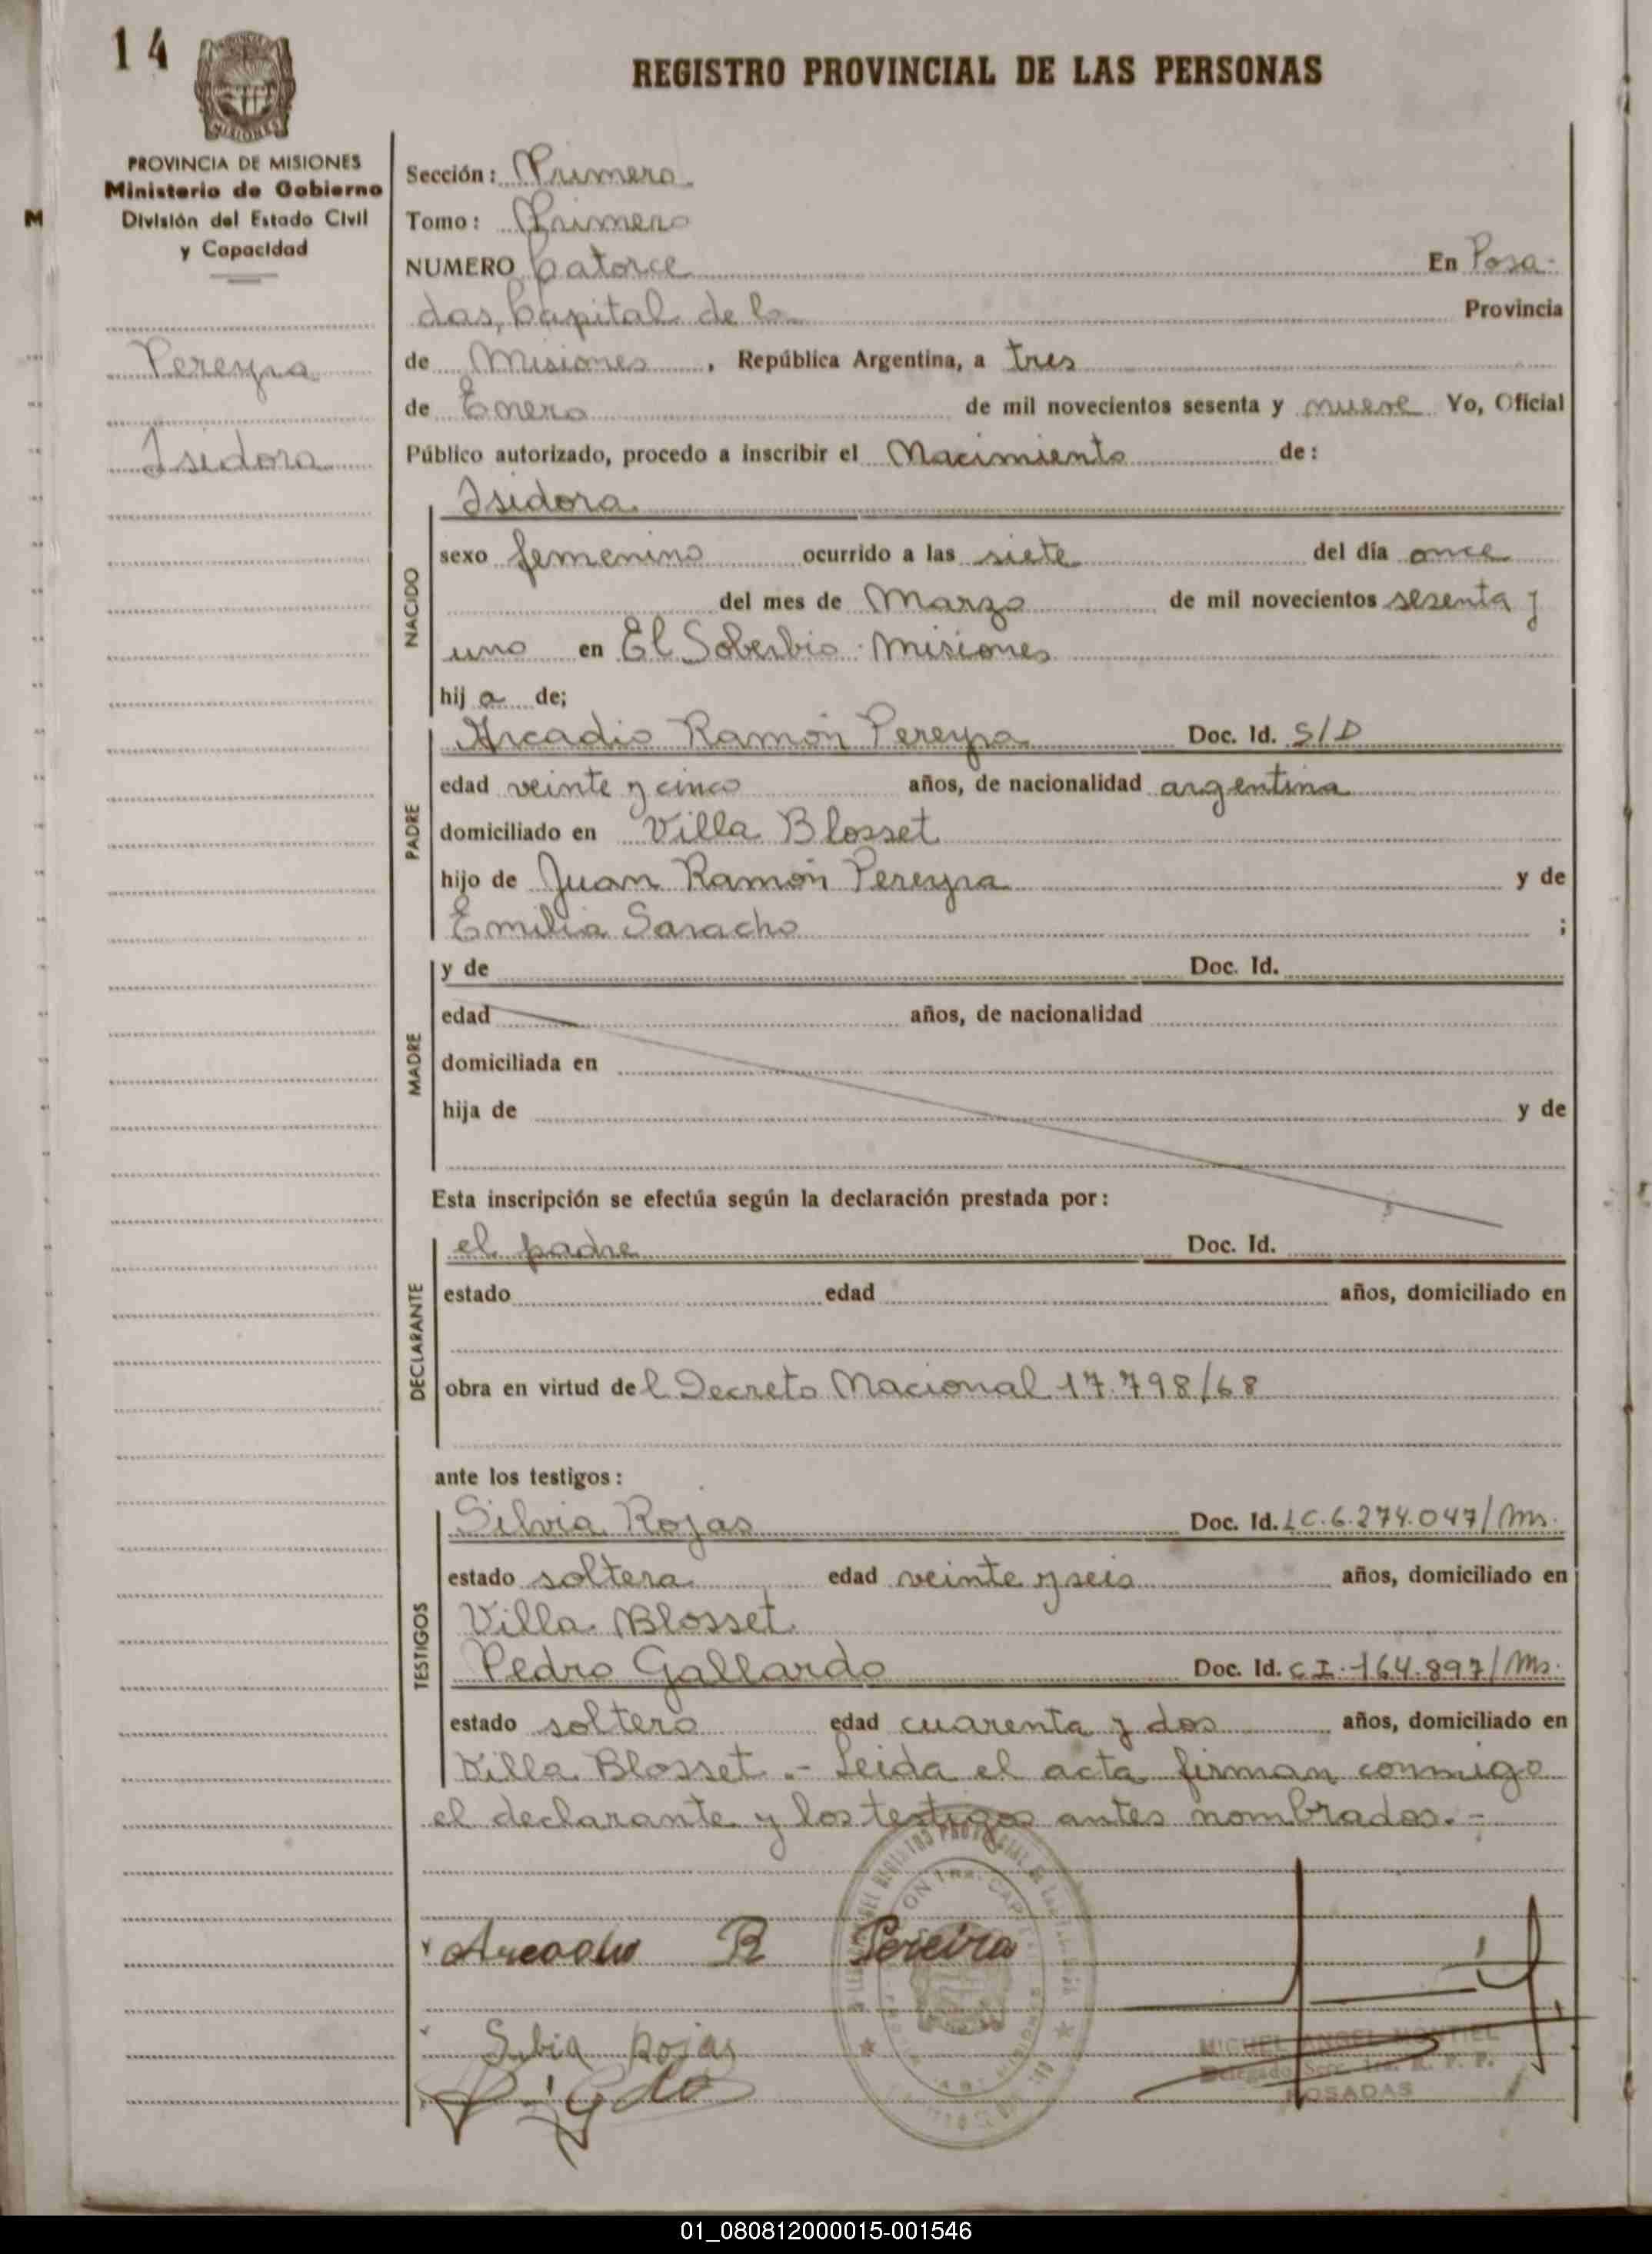 14
REGISTRO PROVINCIAL DE LAS PERSONAS
PROVINCIA DE MISIONES
Ministerio de Gobierno
División del Estado Civil
y Capacidad
M
Pereyra
Isidora
Sección: Primera
Tomo: Primero
NUMERO Catorce En Posa-
das, Capital de la Provincia
de Misiones, República Argentina, a tres
de Enero de mil novecientos sesenta y nueve Yo, Oficial
Público autorizado, procedo a inscribir el Nacimiento de:
NACIDO
Isidora
sexo femenino ocurrido a las siete del día once
del mes de Marzo de mil novecientos sesenta y
uno en El Soberbio - Misiones
hij a de;
PADRE
Arcadio Ramón Pereyra Doc. Id. S/D
edad veinte y cinco años, de nacionalidad argentina
domiciliado en Villa Blosset
hijo de Juan Ramón Pereyra y de
Emilia Saracho ;
MADRE
y de Doc. Id.
edad años, de nacionalidad
domiciliada en
hija de y de
Esta inscripción se efectúa según la declaración prestada por:
DECLARANTE
el padre Doc. Id.
estado edad años, domiciliado en
obra en virtud del Decreto Nacional 17.798/68
ante los testigos:
TESTIGOS
Silvia Rojas Doc. Id. LC.6.274.047/Ms.
estado soltera edad veinte y seis años, domiciliado en
Villa Blosset
Pedro Gallardo Doc. Id. C.I.-164.897/Ms.
estado soltero edad cuarenta y dos años, domiciliado en
Villa Blosset.- Leida el acta firman conmigo
el declarante y los testigos antes nombrados.-
Arcadio R Pereira
Silvia Rojas
MIGUEL ANGEL MONTIEL
Delegado Secc. 1ra. R. P. P.
POSADAS
01_080812000015-001546